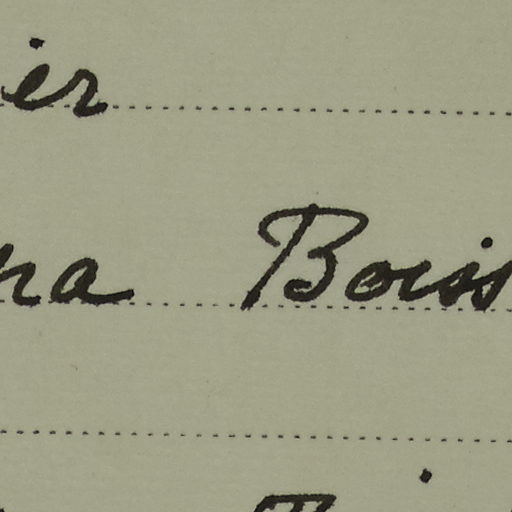 ier
na Boiss